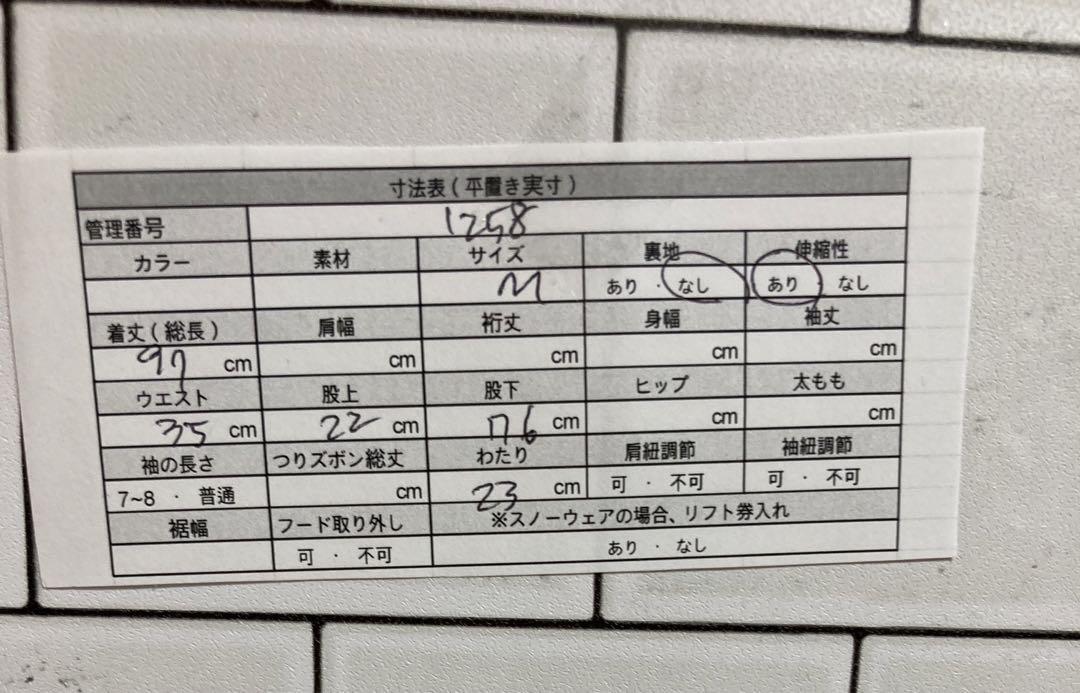 寸法表(平置き実寸)
管理番号 1258
カラー 素材 サイズ 裏地 伸縮性
M あり・なし あり なし
着丈(総長) 肩幅 裄丈 身幅 袖丈
97 cm cm cm cm cm
ウエスト 股上 股下 ヒップ 太もも
35 cm 22 cm 76 cm cm cm
袖の長さ つりズボン総丈 わたり 肩紐調節 袖紐調節
7~8・普通 cm 23 cm 可・不可 可・不可
裾幅 フード取り外し ※スノーウェアの場合、リフト券入れ
可・不可 あり・なし